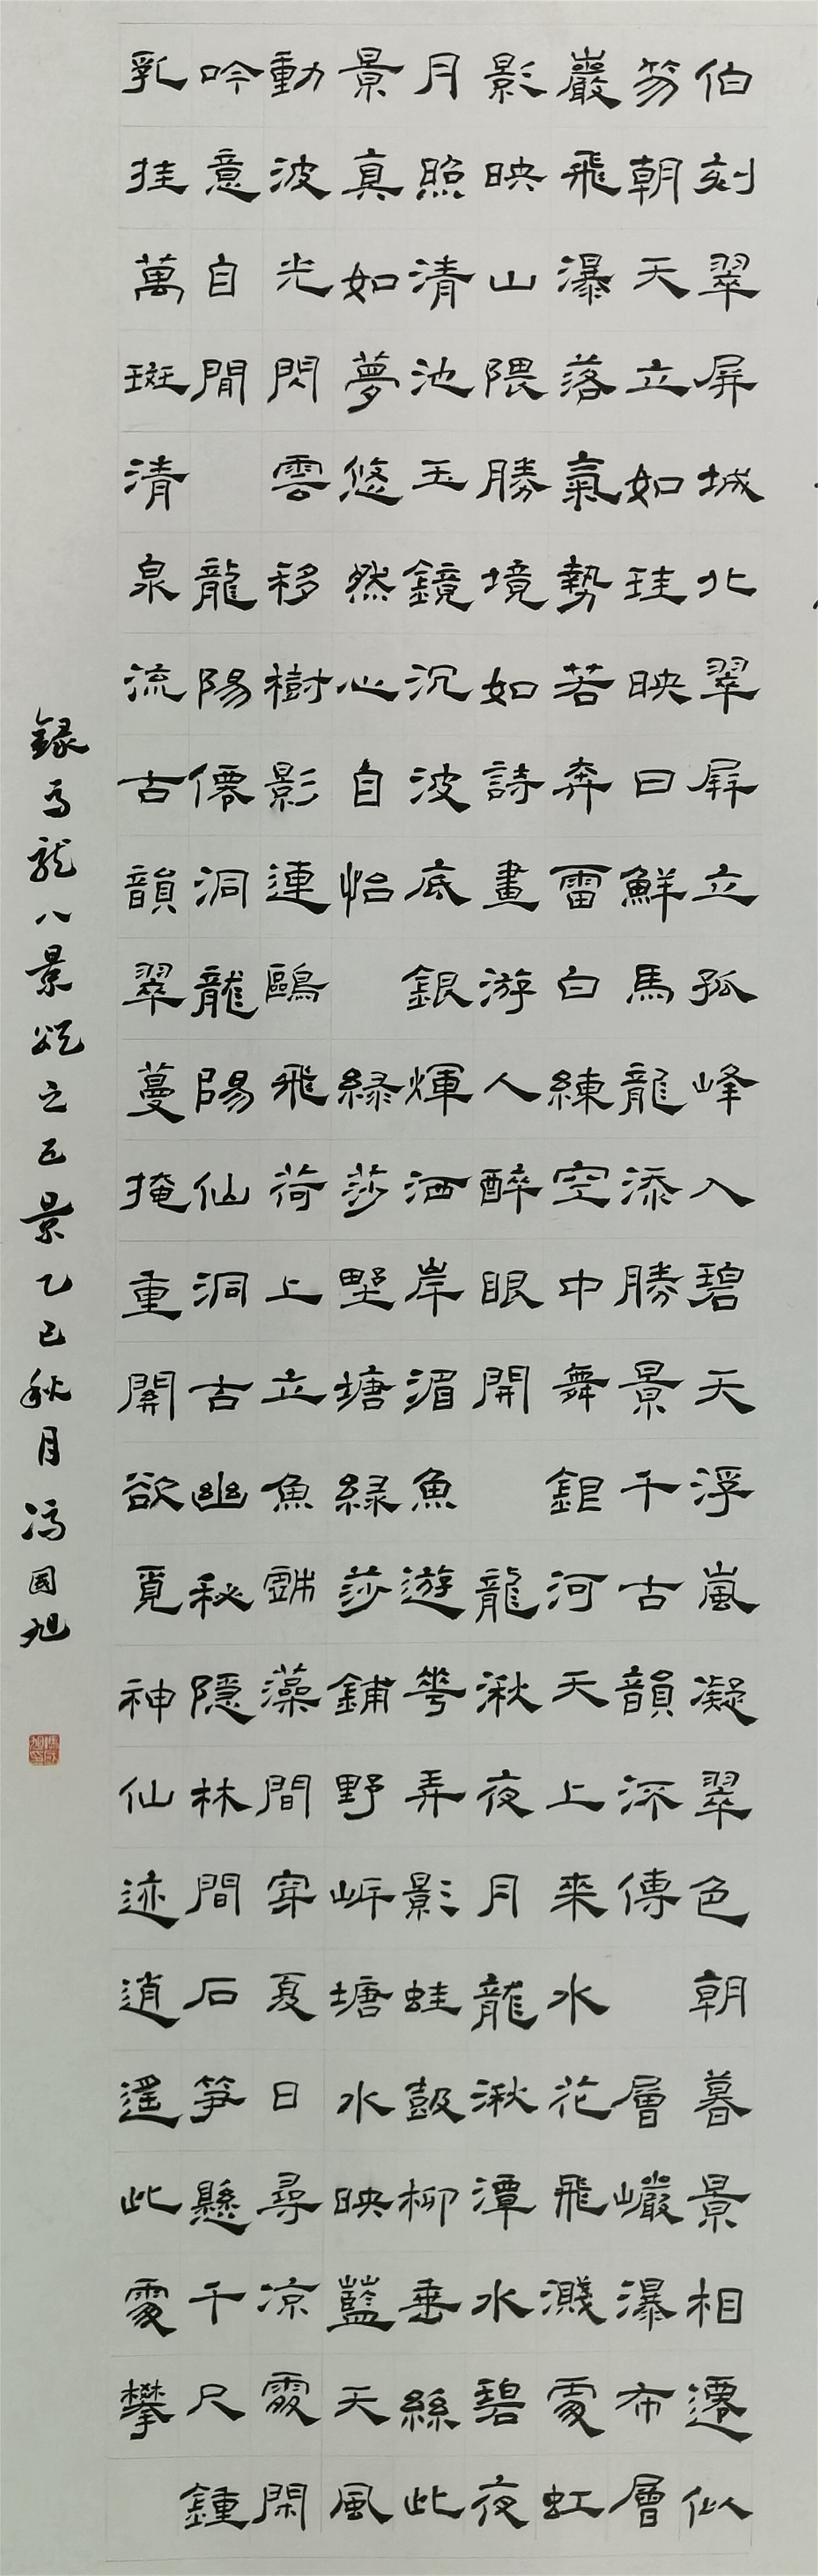 伯刻翠屏城北翠屛立孤峰入碧天浮嵐凝翠色朝暮景相遷似
笏朝天立如珪映日鮮馬龍添勝景千古韻不傳層巘瀑布層
巖飛瀑落氣勢若奔雷白練空中舞銀河天上來水花飛濺處虹
影映山隈勝境如詩畫游人醉眼開龍湫夜月龍湫潭水碧夜
月照清池玉鏡沉波底銀煇洒岸湄魚遊萼弄影蛙鼓柳垂絲此
景真如夢悠然心自怡綠莎墅塘綠莎鋪野岸塘水映藍天風
動波光閃雲移樹影連鷗飛荷上立魚戲藻間穿夏日尋凉處閑
吟意自閒龍陽僊洞龍陽仙洞古幽秘隱林間石笋懸千尺鍾
乳挂萬斑清泉流古韻翠蔓掩重關欲覓神仙迹逍遥此處攀
録馬龍八景頌之五景乙巳秋月馮國旭